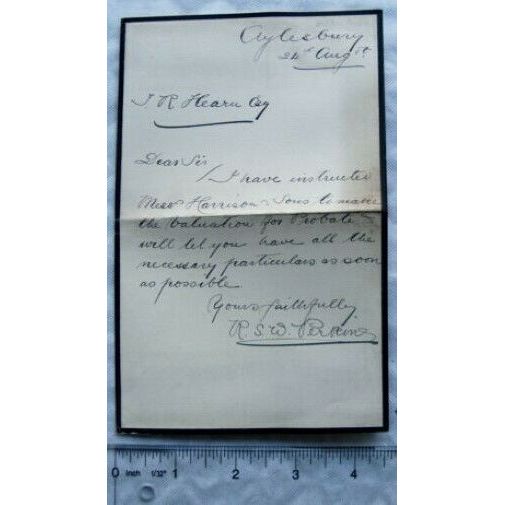 Aylesbury
24th Augst
J R Hearn Esq
Dear Sir
I have instructed
Messrs Harrison & Sons to make
the valuation for Probate &
will let you have all the
necessary particulars as soon
as possible.
Yours faithfully
R. S. W. Perkins
0 inch 1/32" 1 2 3 4